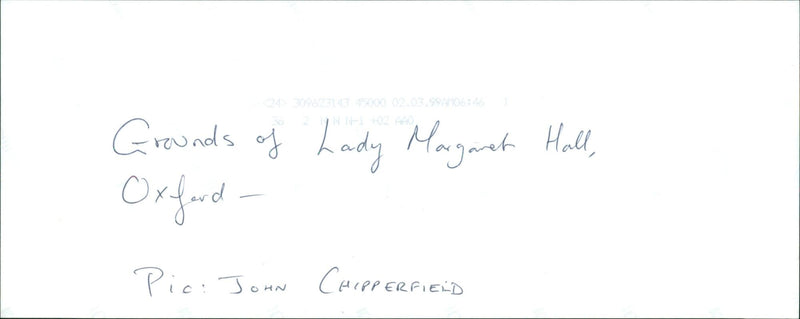 <24> 309623143 #5000 02.03.99AM06:46 1
36 2 N N N-1 +02 AA0
Grounds of Lady Margaret Hall,
Oxford —
Pic: JOHN CHIPPERFIELD